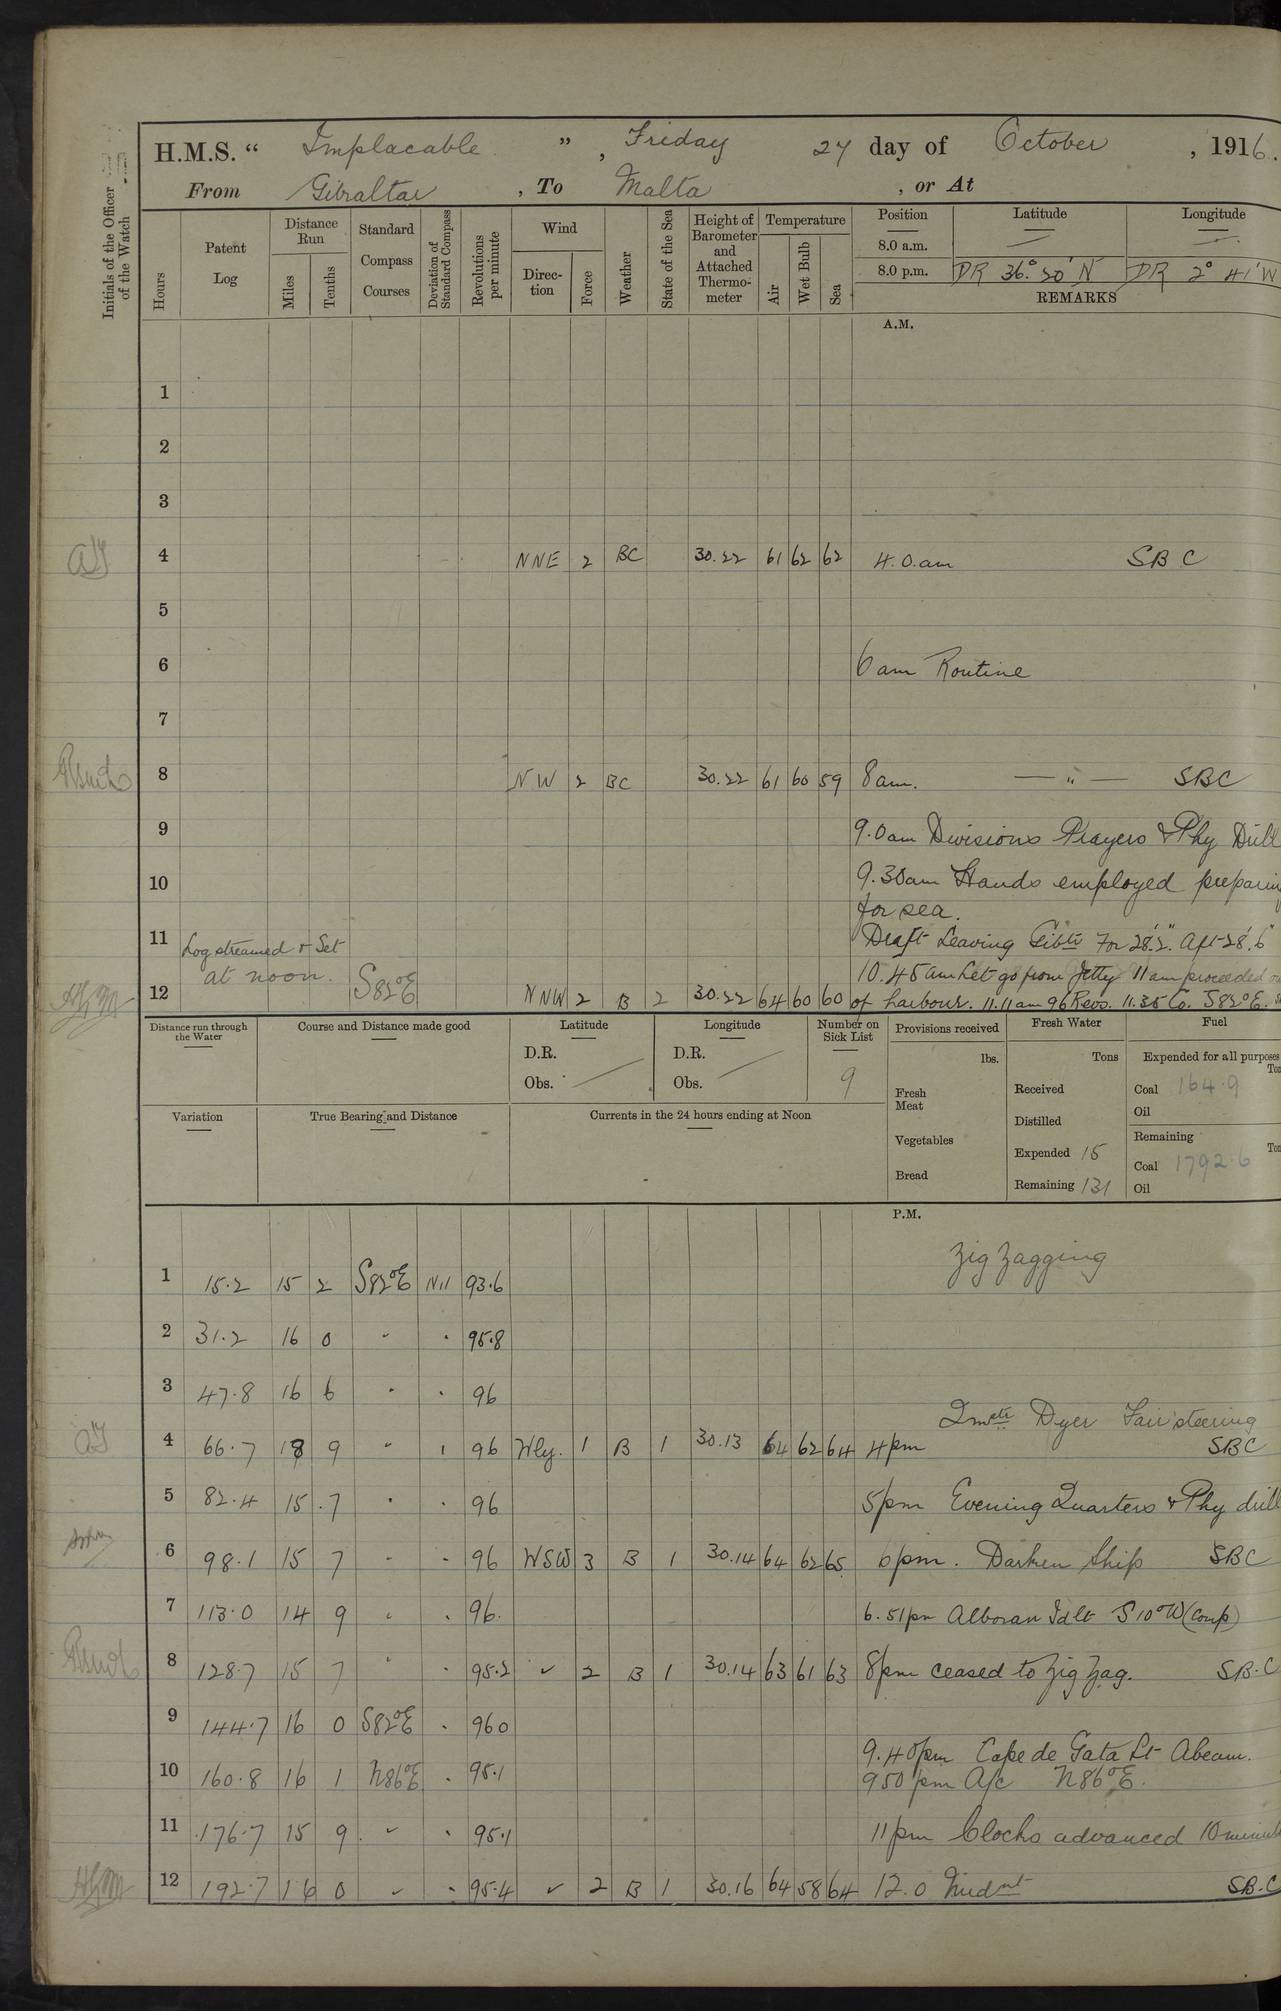 H.M.S. “ Implacable ” , Friday 27 day of October , 1916.
From Gibraltar , To Malta , or At
Initials of the Officer of the Watch
Hours
Patent Log
Distance Run
Miles
Tenths
Standard Compass Courses
Deviation of Standard Compass
Revolutions per minute
Wind
Direc-tion
Force
Weather
State of the Sea
Height of Barometer and Attached Thermo-meter
Temperature
Air
Wet Bulb
Sea
Position Latitude Longitude
8.0 a.m.
8.0 p.m. DR 36° 20' N DR 2° 41' W
REMARKS
A.M.
1
2
3
4 NNE 2 BC 30.22 61 62 62 4.0.am SBC
5
6 6am Routine
7
8 NW 2 BC 30.22 61 60 59 8am. — " — SBC
9 9.0am Divisions Prayers & Phy Drill
10 9.30am Hands employed preparing
for sea.
11 Log streamed & Set Draft Leaving Gibtr For 28'.2". Aft 28'.6"
at noon. 10.45am Let go from Jetty 11am proceeded
12 S82°E NNW 2 B 2 30.22 64 60 60 of harbour. 11.11am 96 Revs. 11.35 Co. S82°E.
Distance run through the Water
Course and Distance made good
Latitude
D.R.
Obs.
Longitude
D.R.
Obs.
Number on Sick List
9
Provisions received
lbs.
Fresh Meat
Vegetables
Bread
Fresh Water
Tons
Received
Distilled
Expended 15
Remaining 131
Fuel
Expended for all purposes
Coal 164.9
Oil
Remaining
Coal 1792.6
Oil
Variation
True Bearing and Distance
Currents in the 24 hours ending at Noon
P.M.
Zig Zagging
1 15.2 15 2 S82°E Nil 93.6
2 31.2 16 0 " " 95.8
3 47.8 16 6 " " 96
Qmstr Dyer Fair steering
4 66.7 18 9 " " 96 Wly. 1 B 1 30.13 64 62 64 4pm SBC
5 82.4 15 .7 " " 96 5pm Evening Quarters & Phy drill
6 98.1 15 7 " " 96 WSW 3 B 1 30.14 64 62 65 6pm. Darken Ship SBC
7 113.0 14 9 " " 96. 6.51pm Alboran Idlt S10°W (Comp)
8 128.7 15 7 " " 95.2 " 2 B 1 30.14 63 61 63 8pm ceased to Zig Zag. SB.C
9 144.7 16 0 S82°E " 960
9.40pm Cape de Gata Lt Abeam.
10 160.8 16 1 N86°E " 95.1 950pm A/c N86°E.
11 176.7 15 9 " " 95.1 11pm Clocks advanced 10
12 192.7 16 0 " " 95.4 " 2 B 1 30.16 64 58 64 12.0 Midnt SB.C